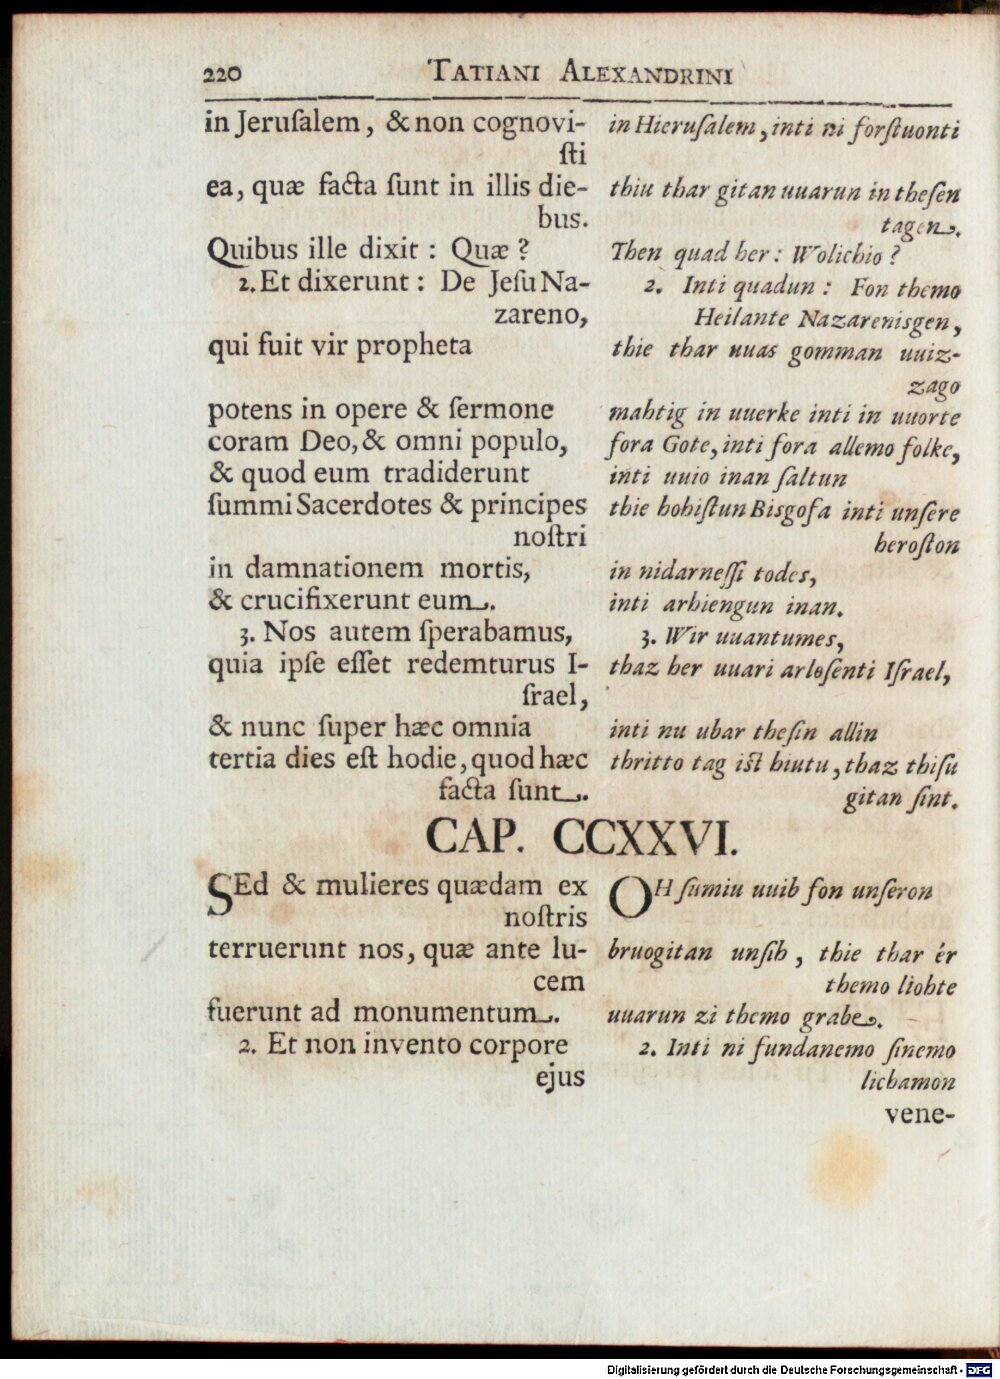 220 TATIANI ALEXANDRINI
in Jeruſalem, & non cognovi-
ſti
ea, quæ facta ſunt in illis die-
bus.
Quibus ille dixit : Quæ ?
2. Et dixerunt : De Jeſu Na-
zareno,
qui fuit vir propheta
potens in opere & ſermone
coram Deo, & omni populo,
& quod eum tradiderunt
ſummi Sacerdotes & principes
noſtri
in damnationem mortis,
& crucifixerunt eum.
3. Nos autem ſperabamus,
quia ipſe eſſet redemturus I-
ſrael,
& nunc ſuper hæc omnia
tertia dies eſt hodie, quod hæc
facta ſunt.
in Hieruſalem, inti ni forſtuonti
thiu thar gitan uuarun in theſen
tagen.
Then quad her : Wolichio ?
2. Inti quadun : Fon themo
Heilante Nazarenisgen,
thie thar uuas gomman uuiz-
zago
mahtig in uuerke inti in uuorte
fora Gote, inti fora allemo folke,
inti uuio inan ſaltun
thie hohiſtun Bisgofa inti unſere
heroſton
in nidarneſſi todes,
inti arhiengun inan.
3. Wir uuantumes,
thaz her uuari arloſenti Iſrael,
inti nu ubar theſin allin
thritto tag iſt hiutu, thaz thiſu
gitan ſint.
CAP. CCXXVI.
SEd & mulieres quædam ex
noſtris
terruerunt nos, quæ ante lu-
cem
fuerunt ad monumentum.
2. Et non invento corpore
ejus
OH ſumiu uuib fon unſeron
bruogitan unſih, thie thar ér
themo liohte
uuarun zi themo grabe.
2. Inti ni fundanemo ſinemo
lichamon
vene-
Digitalisierung gefördert durch die Deutsche Forschungsgemeinschaft - DFG